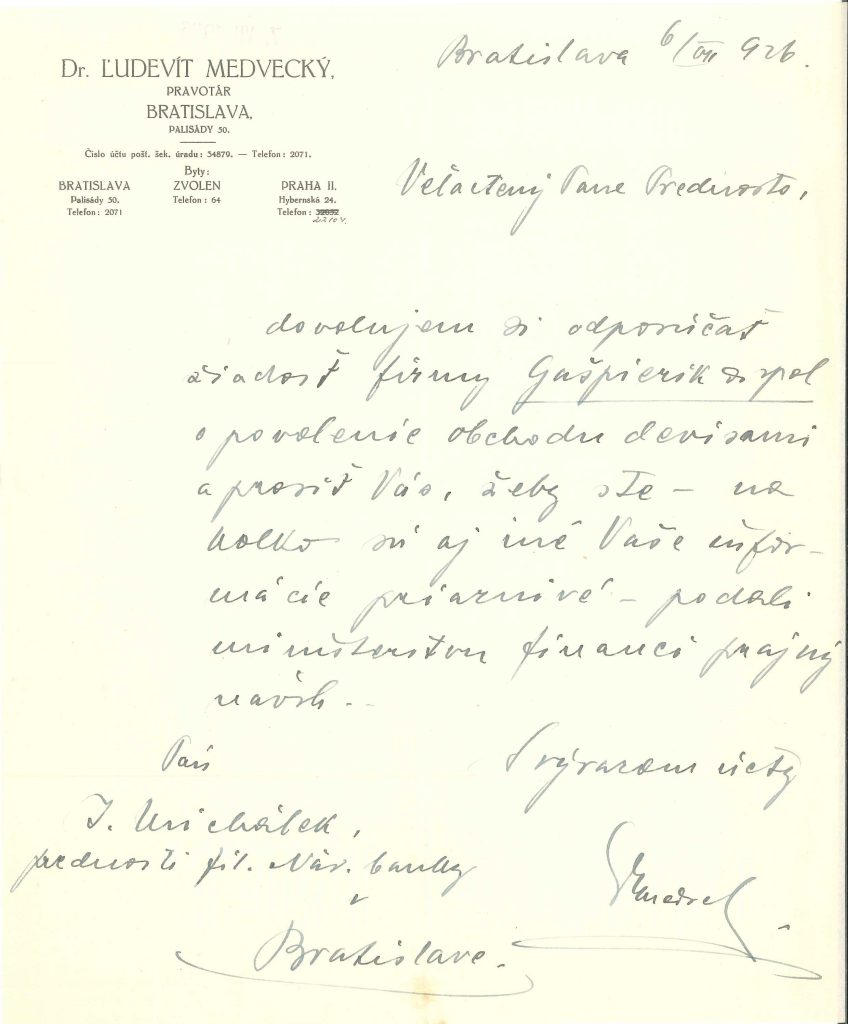 Dr. ĽUDEVÍT MEDVECKÝ,
PRAVOTÁR
BRATISLAVA,
PALISÁDY 50.
Číslo účtu pošt. šek. úradu: 54879. — Telefon: 2071.
Byty:
BRATISLAVA ZVOLEN PRAHA II.
Palisády 50. Telefon: 64 Hybernská 24.
Telefon: 2071 Telefon:
Bratislava 6/VII 926.
Veľactený Pane Prednosto,
dovolujem si odporúčať
žiadosť firmy Gašpierik a spol
o povolenie obchodu devisami
a prosiť Vás, žeby ste – na
kolko sú aj iné Vaše infor-
mácie priaznivé – podali
ministerstvu financí prajný
návrh.
S výrazom úcty
Medvec
Pán
J. Michálek,
prednosti fil. Nár. banky
v
Bratislave.